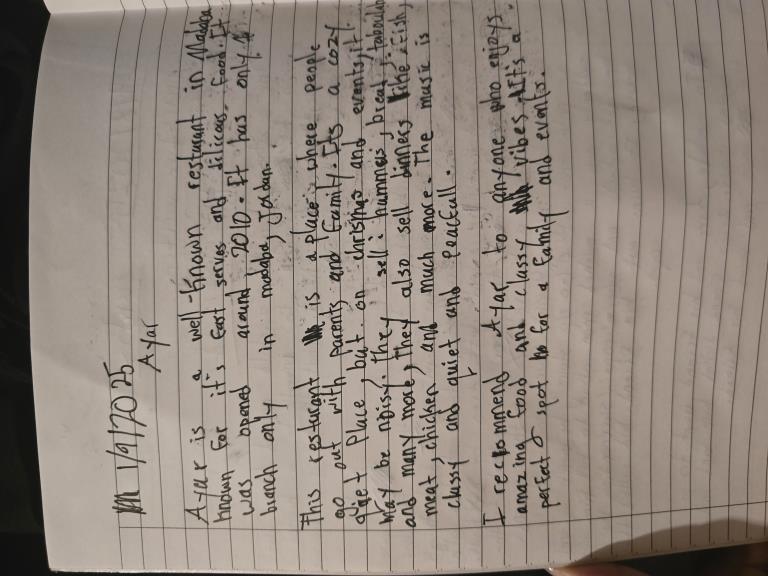 1/9/2025
Ayar
Ayar is a well-known resturant in Madaba
known for it's fast serves and dilicous food. It
was opened around 2010. It has only 1
branch only in madaba, Jordan.
This resturant is a place where people
go out with parents and family. Its a cozy
quiet place, but on chrismas and events, it
may be noisy. they sell: hummus, bread, tabouh
and many more, they also sell dinners like: fish,
meat, chicken, and much more. The music is
classy and quiet and peacfull.
I recommend Ayar to anyone who enjoys
amazing food and classy vibes. It's a
perfect spot for a family and events.